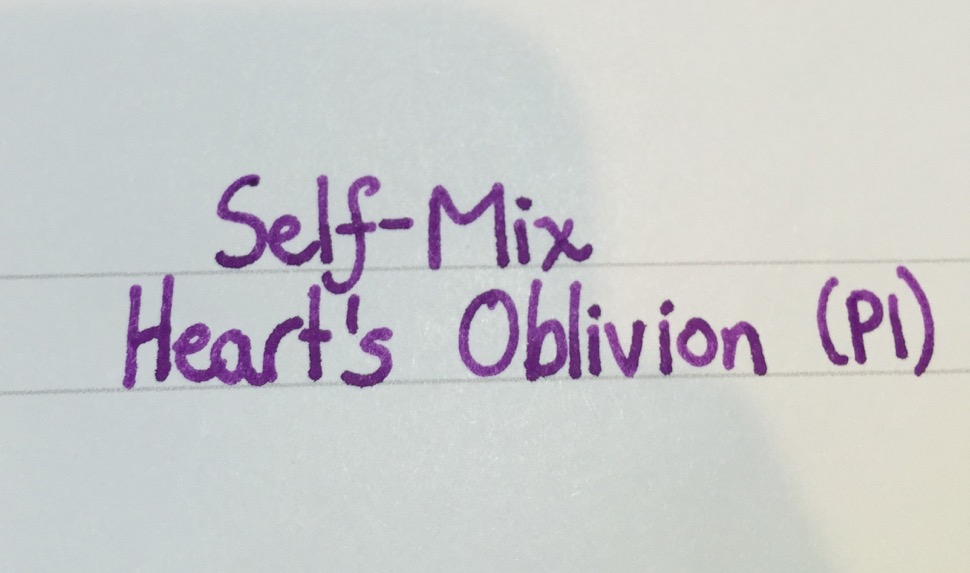 Self-Mix
Heart's Oblivion (PI)